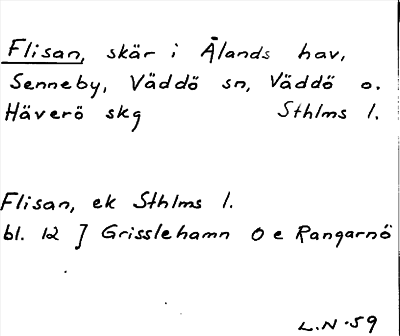 Flisan, skär i Ålands hav,
Senneby, Väddö sn, Väddö o.
Häverö skg Sthlms l.
Flisan, ek Sthlms l.
bl. 12 ] Grisslehamn O e Rangarnö
L.N. 59